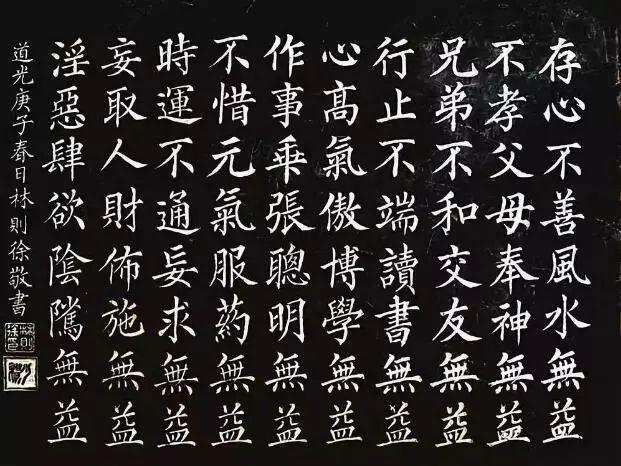 存心不善風水無益
不孝父母奉神無益
兄弟不和交友無益
行止不端讀書無益
心髙氣傲博學無益
作事乖張聰明無益
不惜元氣服药無益
時運不通妄求無益
妄取人財佈施無益
淫惡肆欲陰騭無益
道光庚子春日林則徐敬書